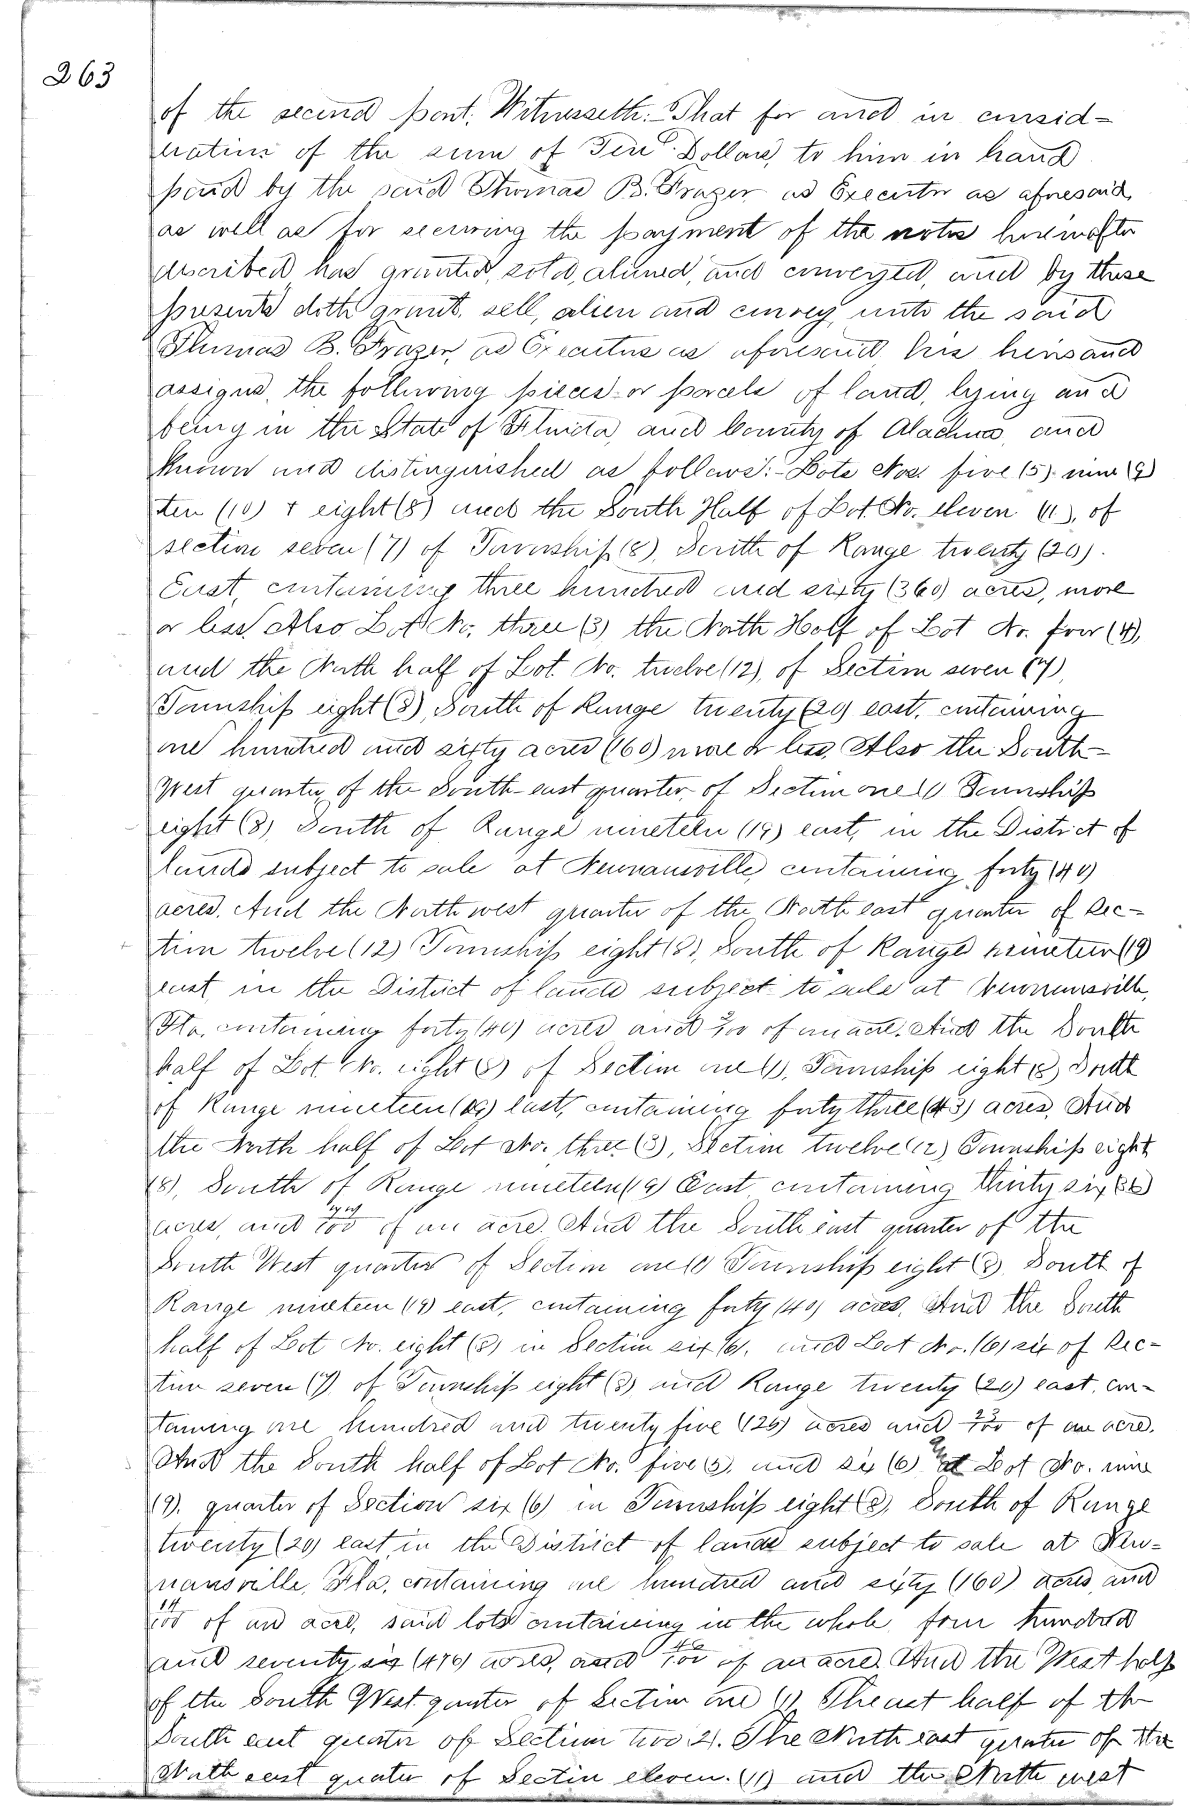 263
of the second part, Witnesseth:- That for and in consid-
eration of the sum of Ten Dollars, to him in hand
paid by the said Thomas B. Frazer as Executor as aforesaid,
as well as for securing the payment of the notes hereinafter
described, has granted, sold, aliened, and conveyed, and by these
presents doth grant, sell, alien and convey, unto the said
Thomas B. Frazer, as Executor as aforesaid, his heirs and
assigns, the following pieces or parcels of land, lying and
being in the State of Florida, and County of Alachua, and
known and distinguished as follows:- Lots Nos. five (5), nine (9)
ten (10) + eight (8) and the South Half of Lot No. eleven (11), of
section seven (7) of Township (8), South of Range twenty (20).
East, containing three hundred and sixty (360) acres, more
or less, Also Lot No. three (3) the North Half of Lot No. four (4),
and the North half of Lot. No. twelve (12), of Section seven (7),
Township eight (8), South of Range twenty (20) east, containing
one hundred and sixty acres (160) more or less, Also the South-
West quarter of the South-east quarter, of Section one (1) Township
eight (8), South of Range nineteen (19) east, in the District of
lands subject to sale at Newnansville, containing forty (40)
acres, And the North west quarter of the North east quarter of Sec-
tion twelve (12) Township eight (8), South of Range nineteen (19)
east in the District of lands subject to sale at Newnansville,
Fla, containing forty (40) acres and /100 of an acre. And the South
half of Lot. No. eight (8) of Section one (1), Township eight (8) South
of Range nineteen (19) east, containing forty three (43) acres, And
the North half of Lot No. three (3), Section twelve (12) Township eight
(8), South of Range nineteen (19) East containing thirty six (36)
acres, and /100 of an acre. And the South east quarter of the
South West quarter of Section one (1) Township eight (8) South of
Range nineteen (19) east, containing forty (40) acres, And the South
half of Lot No. eight (8) in Section six (6), and Lot No. (6) six of Sec-
tion seven (7) of Township eight (8) and Range twenty (20) east, con-
taining one hundred and twenty five (125) acres and 23/100 of an acre.
And the South half of Lot No. five (5), and six (6) and Lot No. nine
(9), quarter of Section six (6) in Township eight (8), South of Range
twenty (20) east in the District of lands subject to sale at New-
nansville, Fla, containing one hundred and sixty (160) acres, and
14/100 of an acre, said lots containing in the whole four hundred
and seventy six (476) acres, and 46/100 of an acre. And the West half
of the South West quarter of Section one (1), The east half of the
South east quarter of Section two 2). The North east quarter of the
North east quater of Section eleven. (11) and the North west